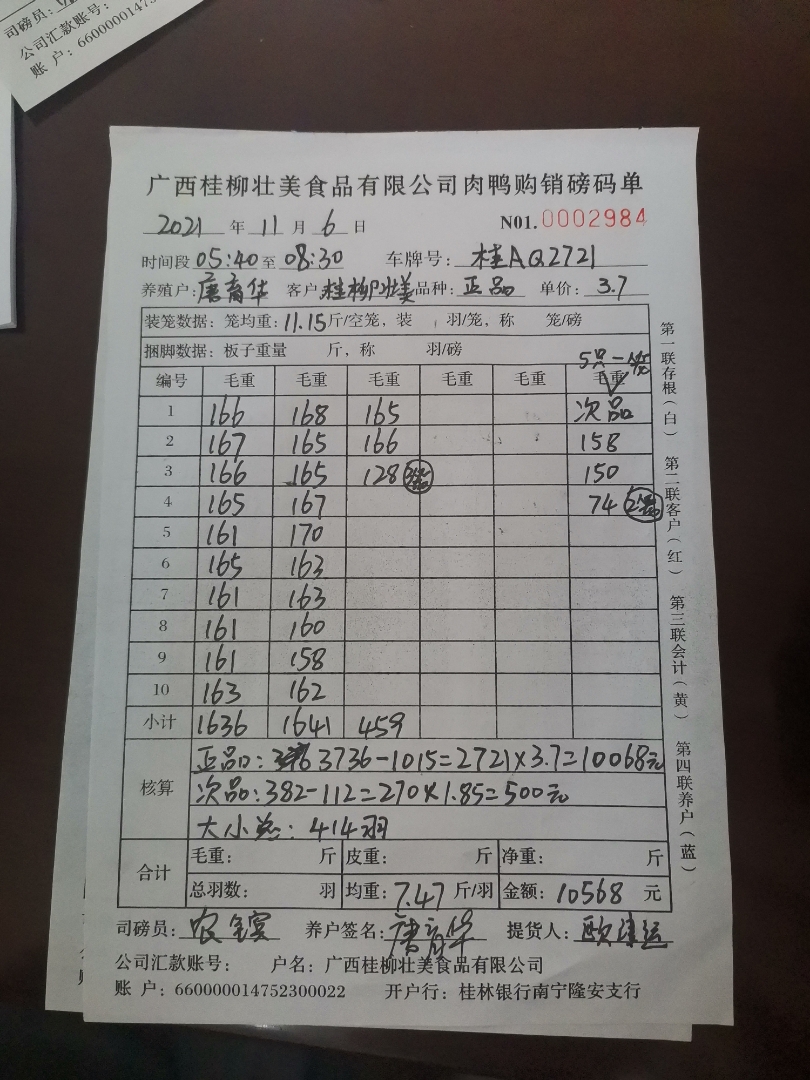 司磅员：
公司汇款账号：
账 户：66000001475
广西桂柳壮美食品有限公司肉鸭购销磅码单
2021 年 11 月 6 日 N01.0002984
时间段 05:40 至 08:30 车牌号：桂AQ2721
养殖户：唐育华 客户：桂柳壮美 品种：正品 单价：3.7
装笼数据：笼均重：11.15斤/空笼，装 羽/笼，称 笼/磅
捆脚数据：板子重量 斤，称 羽/磅
5只一笼
编号 毛重 毛重 毛重 毛重 毛重 毛重
1 166 168 165 次品
2 167 165 166 158
3 166 165 128 150
4 165 167 74
5 161 170
6 165 163
7 161 163
8 161 160
9 161 158
10 163 162
小计 1636 1641 459
核算
正品：3736-1015=2721×3.7=10068元
次品：382-112=270×1.85=500元
大小总：414羽
合计
毛重： 斤 皮重： 斤 净重： 斤
总羽数： 羽 均重：7.47 斤/羽 金额：10568 元
司磅员：农 养户签名：唐育华 提货人：欧
公司汇款账号： 户名：广西桂柳壮美食品有限公司
账 户：660000014752300022 开户行：桂林银行南宁隆安支行
第一联存根（白） 第二联客户（红） 第三联会计（黄） 第四联养户（蓝）